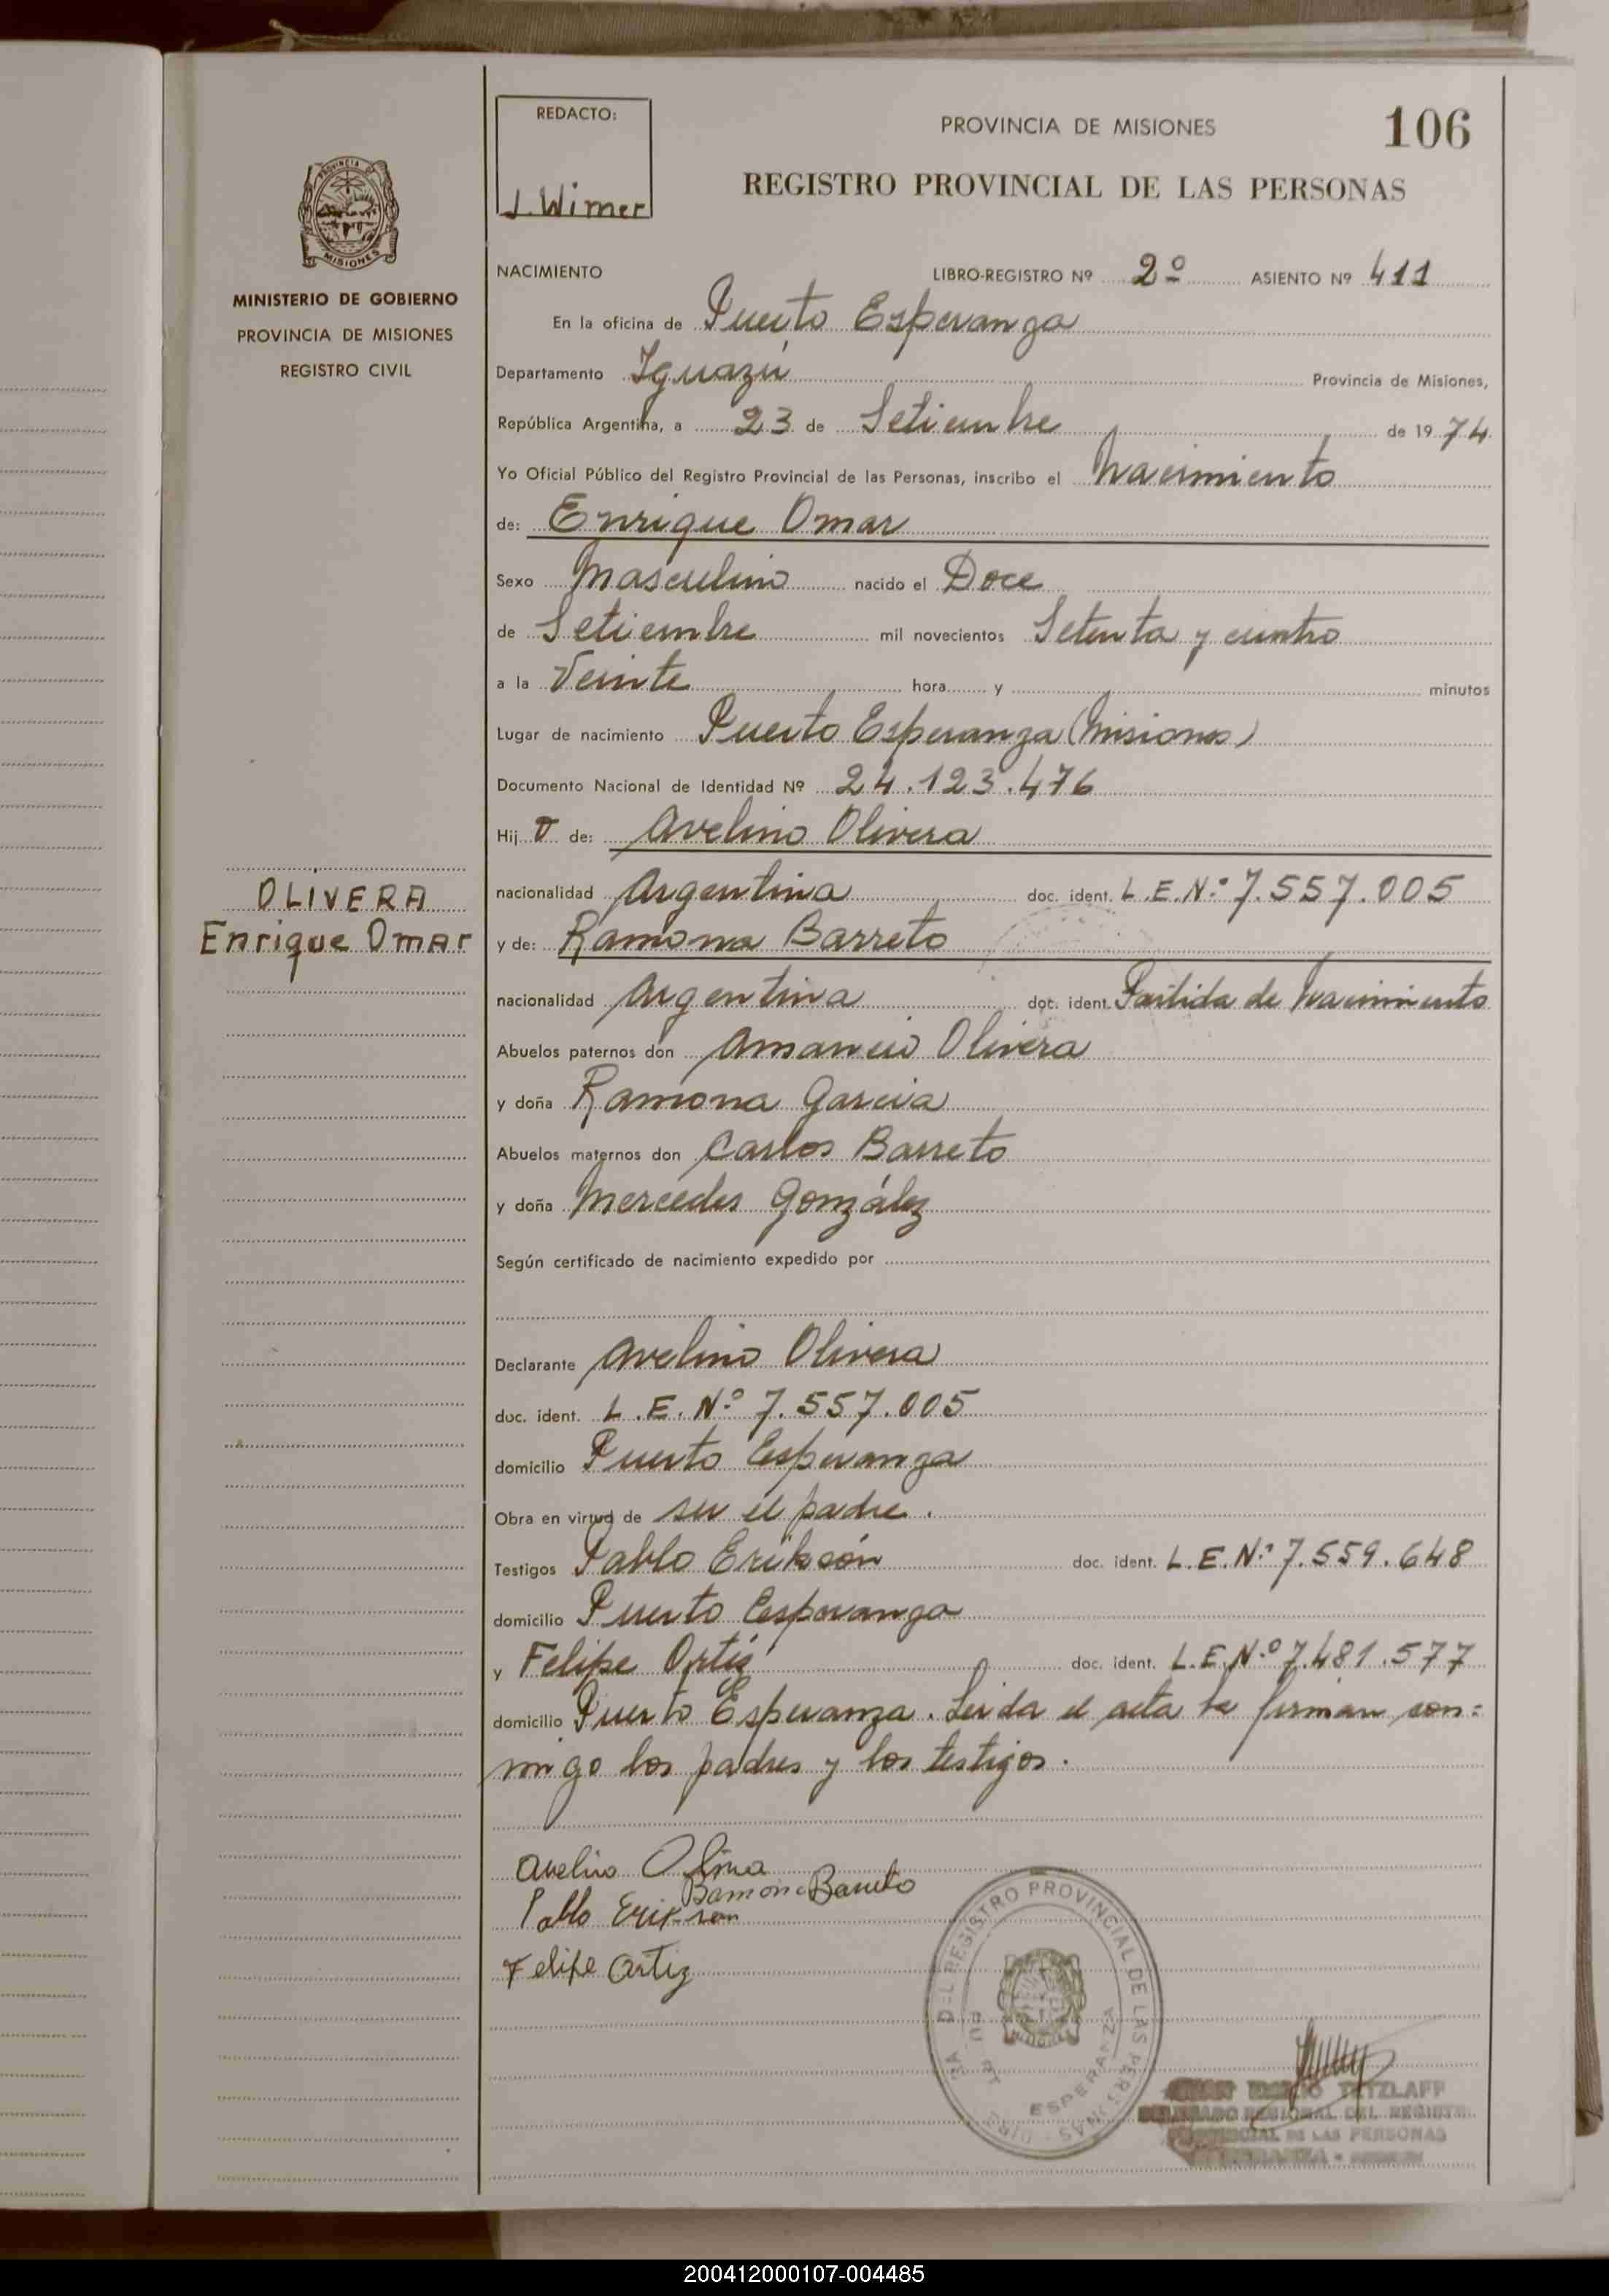 REDACTO:
J. Wimer
PROVINCIA DE MISIONES
106
REGISTRO PROVINCIAL DE LAS PERSONAS
PROVINCIA DE
MISIONES
MINISTERIO DE GOBIERNO
PROVINCIA DE MISIONES
REGISTRO CIVIL
NACIMIENTO LIBRO-REGISTRO Nº 2º ASIENTO Nº 411
En la oficina de Puerto Esperanza
Departamento Iguazú Provincia de Misiones,
República Argentina, a 23 de Setiembre de 1974
Yo Oficial Público del Registro Provincial de las Personas, inscribo el Nacimiento
de: Enrique Omar
Sexo Masculino nacido el Doce
de Setiembre mil novecientos Setenta y cuatro
a la Veinte hora y minutos
Lugar de nacimiento Puerto Esperanza (Misiones)
Documento Nacional de Identidad Nº 24.123.476
Hijo de: Avelino Olivera
OLIVERA
Enrique Omar
nacionalidad Argentina doc. ident. L.E.Nº 7.557.005
y de: Ramona Barreto
nacionalidad Argentina doc. ident. Partida de Nacimiento
Abuelos paternos don Amancio Olivera
y doña Ramona Garcia
Abuelos maternos don Carlos Barreto
y doña Mercedes González
Según certificado de nacimiento expedido por
Declarante Avelino Olivera
doc. ident. L.E.Nº 7.557.005
domicilio Puerto Esperanza
Obra en virtud de ser el padre.
Testigos Pablo Erikson doc. ident. L.E.Nº 7.559.648
domicilio Puerto Esperanza
y Felipe Ortíz doc. ident. L.E.Nº 7.481.577
domicilio Puerto Esperanza. Leida el acta la firman con=
migo los padres y los testigos.
Avelino Olivera
Ramona Barreto
Pablo Erikson
Felipe Ortiz
DEL REGISTRO PROVINCIAL DE LAS PERSONAS
ESPERANZA
TETZLAFF
DELEGADO REGIONAL DEL REGISTRO
PROVINCIAL DE LAS PERSONAS
200412000107-004485